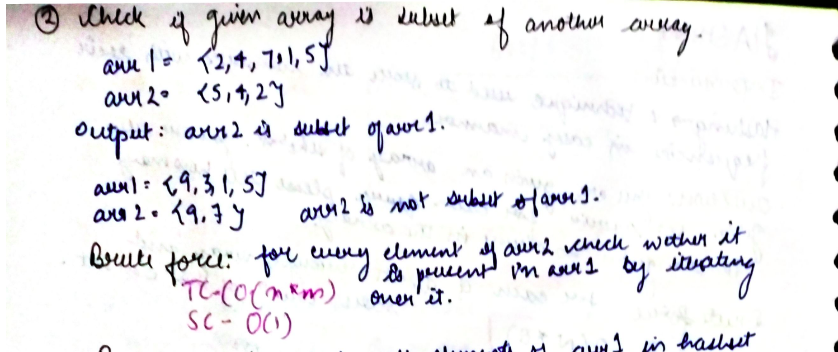 ② Check if given array is subset of another array.
arr 1 = {2,4,7,1,5}
arr 2 = {5,4,2}
Output: arr2 is subset of arr1.
arr1 = {9,3,1,5}
arr 2 = {9,7} arr2 is not subset of arr1.
Brute force: for every element of arr2 check wether it
is present in arr1 by iterating
over it.
TC-(O(n*m)
SC - O(1)
of arr1 in hashset